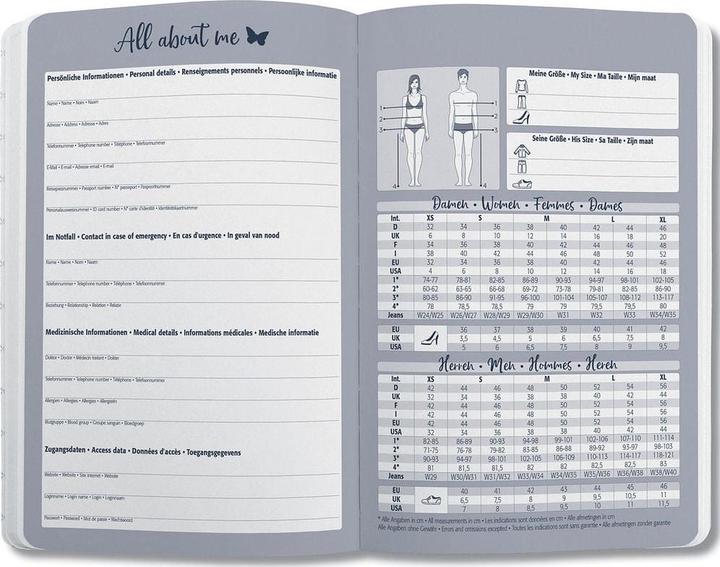 All about me
Persönliche Informationen • Personal details • Renseignements personnels • Persoonlijke informatie
Name • Name • Nom • Naam
Adresse • Address • Adresse • Adres
Telefonnummer • Telephone number • Téléphone • Telefoonnummer
E-Mail • E-mail • Adresse email • E-mail
Reisepassnummer • Passport number • N° passeport • Paspoortnummer
Personalausweisnummer • ID card number • N° carte d'identité • Identiteitskaartnummer
Im Notfall • Contact in case of emergency • En cas d'urgence • In geval van nood
Name • Name • Nom • Naam
Telefonnummer • Telephone number • Téléphone • Telefoonnummer
Beziehung • Relationship • Relation • Relatie
Medizinische Informationen • Medical details • Informations médicales • Medische informatie
Doktor • Doctor • Médecin traitant • Dokter
Telefonnummer • Telephone number • Téléphone • Telefoonnummer
Allergien • Allergies • Allergies • Allergieën
Blutgruppe • Blood group • Groupe sanguin • Bloedgroep
Zugangsdaten • Access data • Données d'accès • Toegangsgegevens
Website • Website • Site internet • Website
Loginname • Login name • Login • Loginnaam
Passwort • Password • Mot de passe • Wachtwoord
1
2
3
4
1
2
3
4
Meine Größe • My Size • Ma Taille • Mijn maat
Seine Größe • His Size • Sa Taille • Zijn maat
Damen • Women • Femmes • Dames
Int. XS S M L XL
D 32 34 36 38 40 42 44 46
UK 6 8 10 12 14 16 18 20
F 34 36 38 40 42 44 46 48
I 38 40 42 44 46 48 50 52
EU 32 34 36 38 40 42 44 46
USA 4 6 8 10 12 14 16 18
1* 74-77 78-81 82-85 86-89 90-93 94-97 98-101 102-105
2* 60-62 63-65 66-68 69-72 73-78 79-81 82-85 86-90
3* 80-85 86-90 91-95 96-100 101-104 105-107 108-112 113-117
4* 78 78,5 78,5 79 79 79,5 79,5 80
Jeans W24/W25 W26/W27 W28/W29 W29/W30 W31 W32 W33 W34/W35
EU 36 37 38 39 40 41 42
UK 3,5 4,5 5 6 6,5 7,5 8
USA 5 6 6,5 7,5 8 9 9,5
Herren • Men • Hommes • Heren
Int. XS S M L XL
D 42 44 46 48 50 52 54 56
UK 32 34 36 38 38 40 42 44
F 42 44 46 48 50 52 54 56
I 42 44 46 48 50 52 54 56
EU 42 44 46 48 50 52 54 56
USA 32 34 36 38 38 40 42 44
1* 82-85 86-89 90-93 94-98 99-101 102-106 107-110 111-114
2* 71-75 76-78 79-82 83-85 86-88 89-92 93-97 98-103
3* 90-93 94-97 98-101 102-105 106-109 110-113 114-117 118-121
4* 81 81,5 81,5 82 82 82,5 82,5 83
Jeans W29 W30/W31 W31/W32 W33/W34 W34/W35 W35/W36 W36/W38 W38/W40
EU 40 41 42 43 44 45 46
UK 6,5 7,5 8 9 9,5 10,5 11
USA 7 8 8,5 9,5 10 11 11,5
* Alle Angaben in cm • All measurements in cm • Les indications sont données en cm • Alle afmetingen in cm
Alle Angaben ohne Gewähr • Errors and omissions excepted • Toutes les indications sont sans garantie • Alle afmetingen zonder garantie